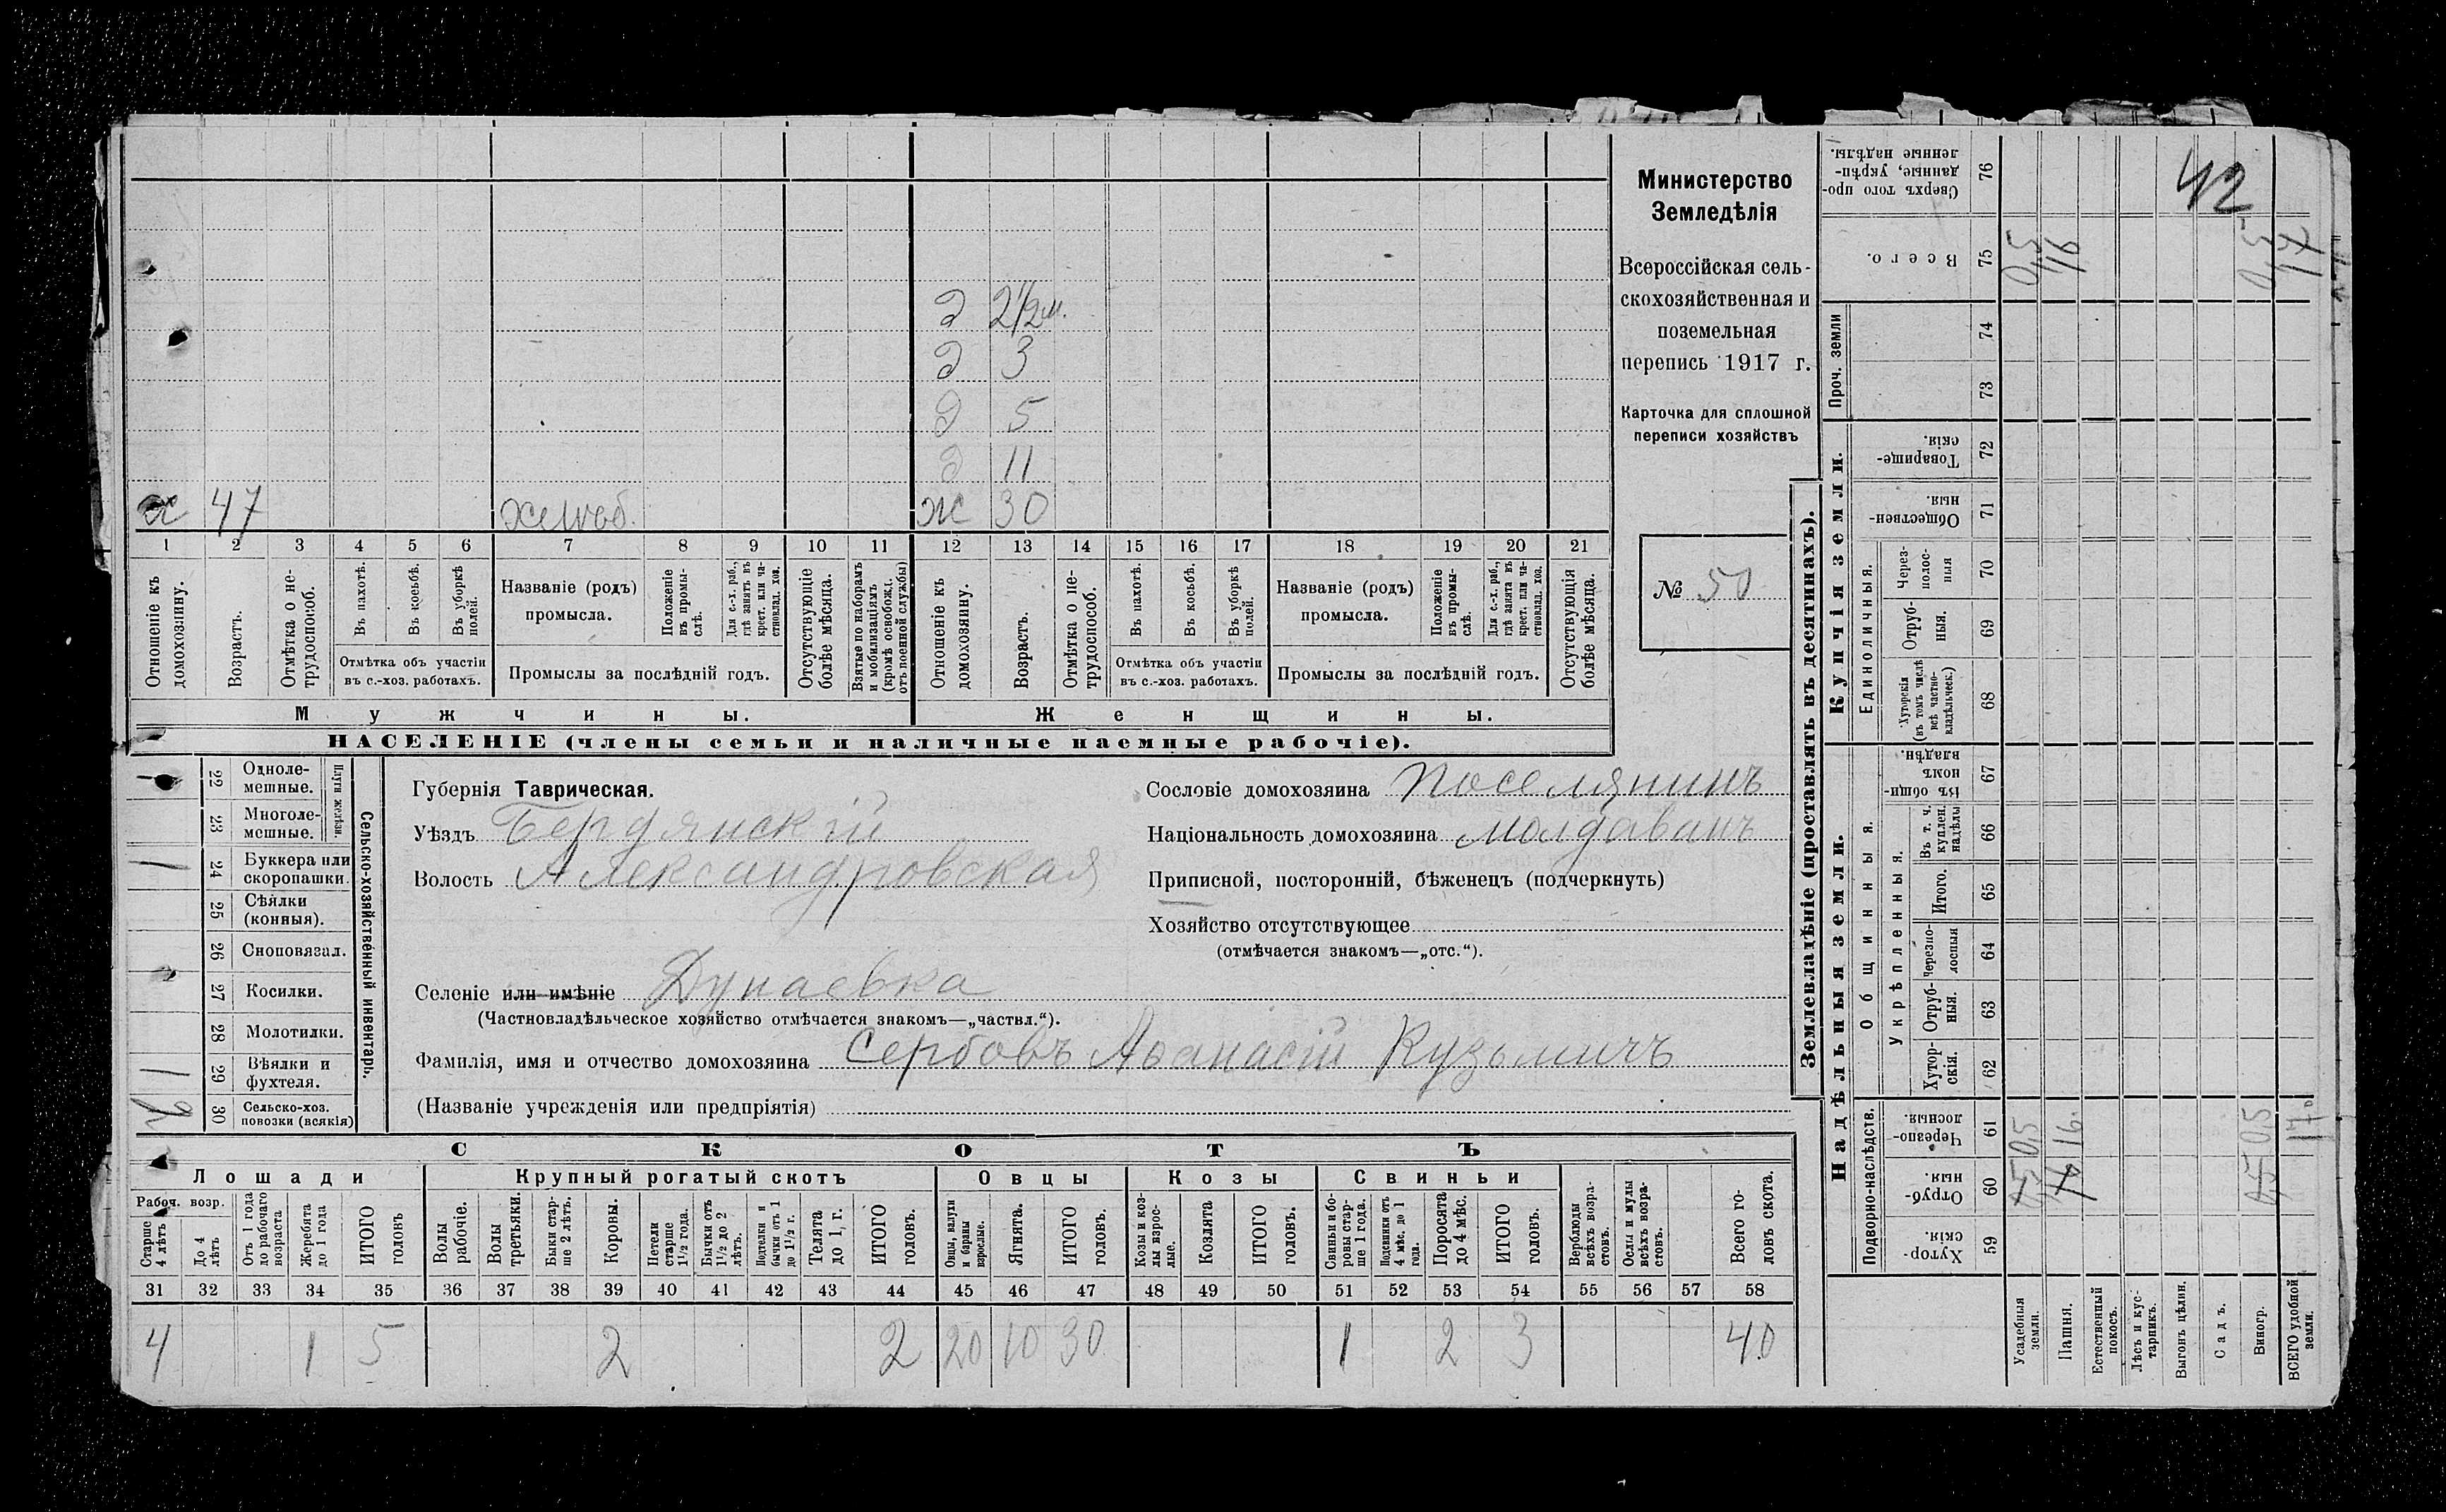 42
Министерство
Земледѣлія
Всероссійская сель-
скохозяйственная и
поземельная
перепись 1917 г.
Карточка для сплошной
переписи хозяйствъ
№ 50
д 2½ м.
д 3
д 5
д 11
х 47 ж 30
1 2 3 4 5 6 7 8 9 10 11 12 13 14 15 16 17 18 19 20 21
Отношеніе къ домохозяину.
Возрастъ.
Отмѣтка о не-трудоспособ.
Въ пахотѣ.
Въ косьбѣ.
Въ уборкѣ полей.
Отмѣтка объ участіи
въ с.-хоз. работахъ.
Названіе (родъ)
промысла.
Положеніе въ промы-слѣ.
Для с.-х. раб., гдѣ занятъ въ крест. или ча-стновлад. хоз.
Промыслы за послѣдній годъ.
Отсутствующіе болѣе мѣсяца.
Взятые по наборамъ и мобилизаціямъ (кромѣ освобожд. отъ военной службы)
Отношеніе къ домохозяину.
Возрастъ.
Отмѣтка о не-трудоспособ.
Въ пахотѣ.
Въ косьбѣ.
Въ уборкѣ полей.
Отмѣтка объ участіи
въ с.-хоз. работахъ.
Названіе (родъ)
промысла.
Положеніе въ промы-слѣ.
Для с.-х. раб., гдѣ занята въ крест. или ча-стновлад. хоз.
Промыслы за послѣдній годъ.
Отсутствующія болѣе мѣсяца.
Мужчины.
Женщины.
НАСЕЛЕНІЕ (члены семьи и наличные наемные рабочіе).
Сельско-хозяйственный инвентарь.
Плуги желѣзн.
22 Одноле-мешные.
23 Многоле-мешные.
1 24 Буккера или скоропашки.
25 Сѣялки (конныя).
26 Сноповязал.
27 Косилки.
28 Молотилки.
1 29 Вѣялки и фухтеля.
30 Сельско-хоз. повозки (всякія)
Губернія Таврическая.
Уѣздъ Бердянскій
Волость Александровская
Селеніе или имѣніе Дунаевка
(Частновладѣльческое хозяйство отмѣчается знакомъ—„частвл.“).
Фамилія, имя и отчество домохозяина Сербовъ Аѳанасій Кузьмичъ
(Названіе учрежденія или предпріятія)
Сословіе домохозяина поселянинъ
Національность домохозяина молдаванъ
Приписной, посторонній, бѣженецъ (подчеркнуть)
Хозяйство отсутствующее
(отмѣчается знакомъ—„отс.“).
СКОТЪ
Лошади Крупный рогатый скотъ Овцы Козы Свиньи
Рабоч. возр.
Старше 4 лѣтъ
До 4 лѣтъ
Отъ 1 года до рабочаго возраста
Жеребята до 1 года
ИТОГО головъ
Волы рабочіе.
Волы третьяки.
Быки стар-ше 2 лѣтъ.
Коровы.
Нетели старше 1½ года.
Бычки отъ 1½ до 2 лѣтъ.
Подтелки и бычки отъ 1 до 1½ г.
Телята до 1 г.
ИТОГО головъ.
Овцы, валухи и бараны взрослые.
Ягнята.
ИТОГО головъ.
Козы и коз-лы взрос-лые.
Козлята
ИТОГО головъ.
Свиньи и бо-ровы стар-ше 1 года.
Подсвинки отъ 4 мѣс. до 1 года.
Поросята до 4 мѣс.
ИТОГО головъ.
Верблюды всѣхъ возра-стовъ.
Ослы и мулы всѣхъ возра-стовъ.
Всего го-ловъ скота.
31 32 33 34 35 36 37 38 39 40 41 42 43 44 45 46 47 48 49 50 51 52 53 54 55 56 57 58
4 1 5 2 2 20 10 30 1 2 3 40
Землевладѣніе (проставлять въ десятинахъ).
Надѣльныя земли.
Купчія земли.
Подворно-наслѣдств.
Общинныя.
Укрѣпленныя.
Единоличныя.
Проч. земли
Хутор-скія. 59
Отруб-ныя. 60
Черезпо-лосныя. 61
Хутор-скія. 62
Отруб-ныя. 63
Черезпо-лосныя 64
Итого. 65
Въ т. ч. куплен. надѣлы 66
Въ общин-номъ владѣн. 67
Хуторскія (въ томъ числѣ всѣ частно-владѣльческ.) 68
Отруб-ныя. 69
Через-полос-ныя 70
Обществен-ныя. 71
Товарище-скія. 72
73
74
Всего. 75
Сверхъ того про-данные, укрѣп-ленные надѣлы. 76
Усадебныя земли. 05
Пашня. 16
Естественный покосъ.
Лѣсъ и кус-тарникъ.
Выгонъ цѣлин.
Садъ.
Виногр. 05
ВСЕГО удобной земли. 17